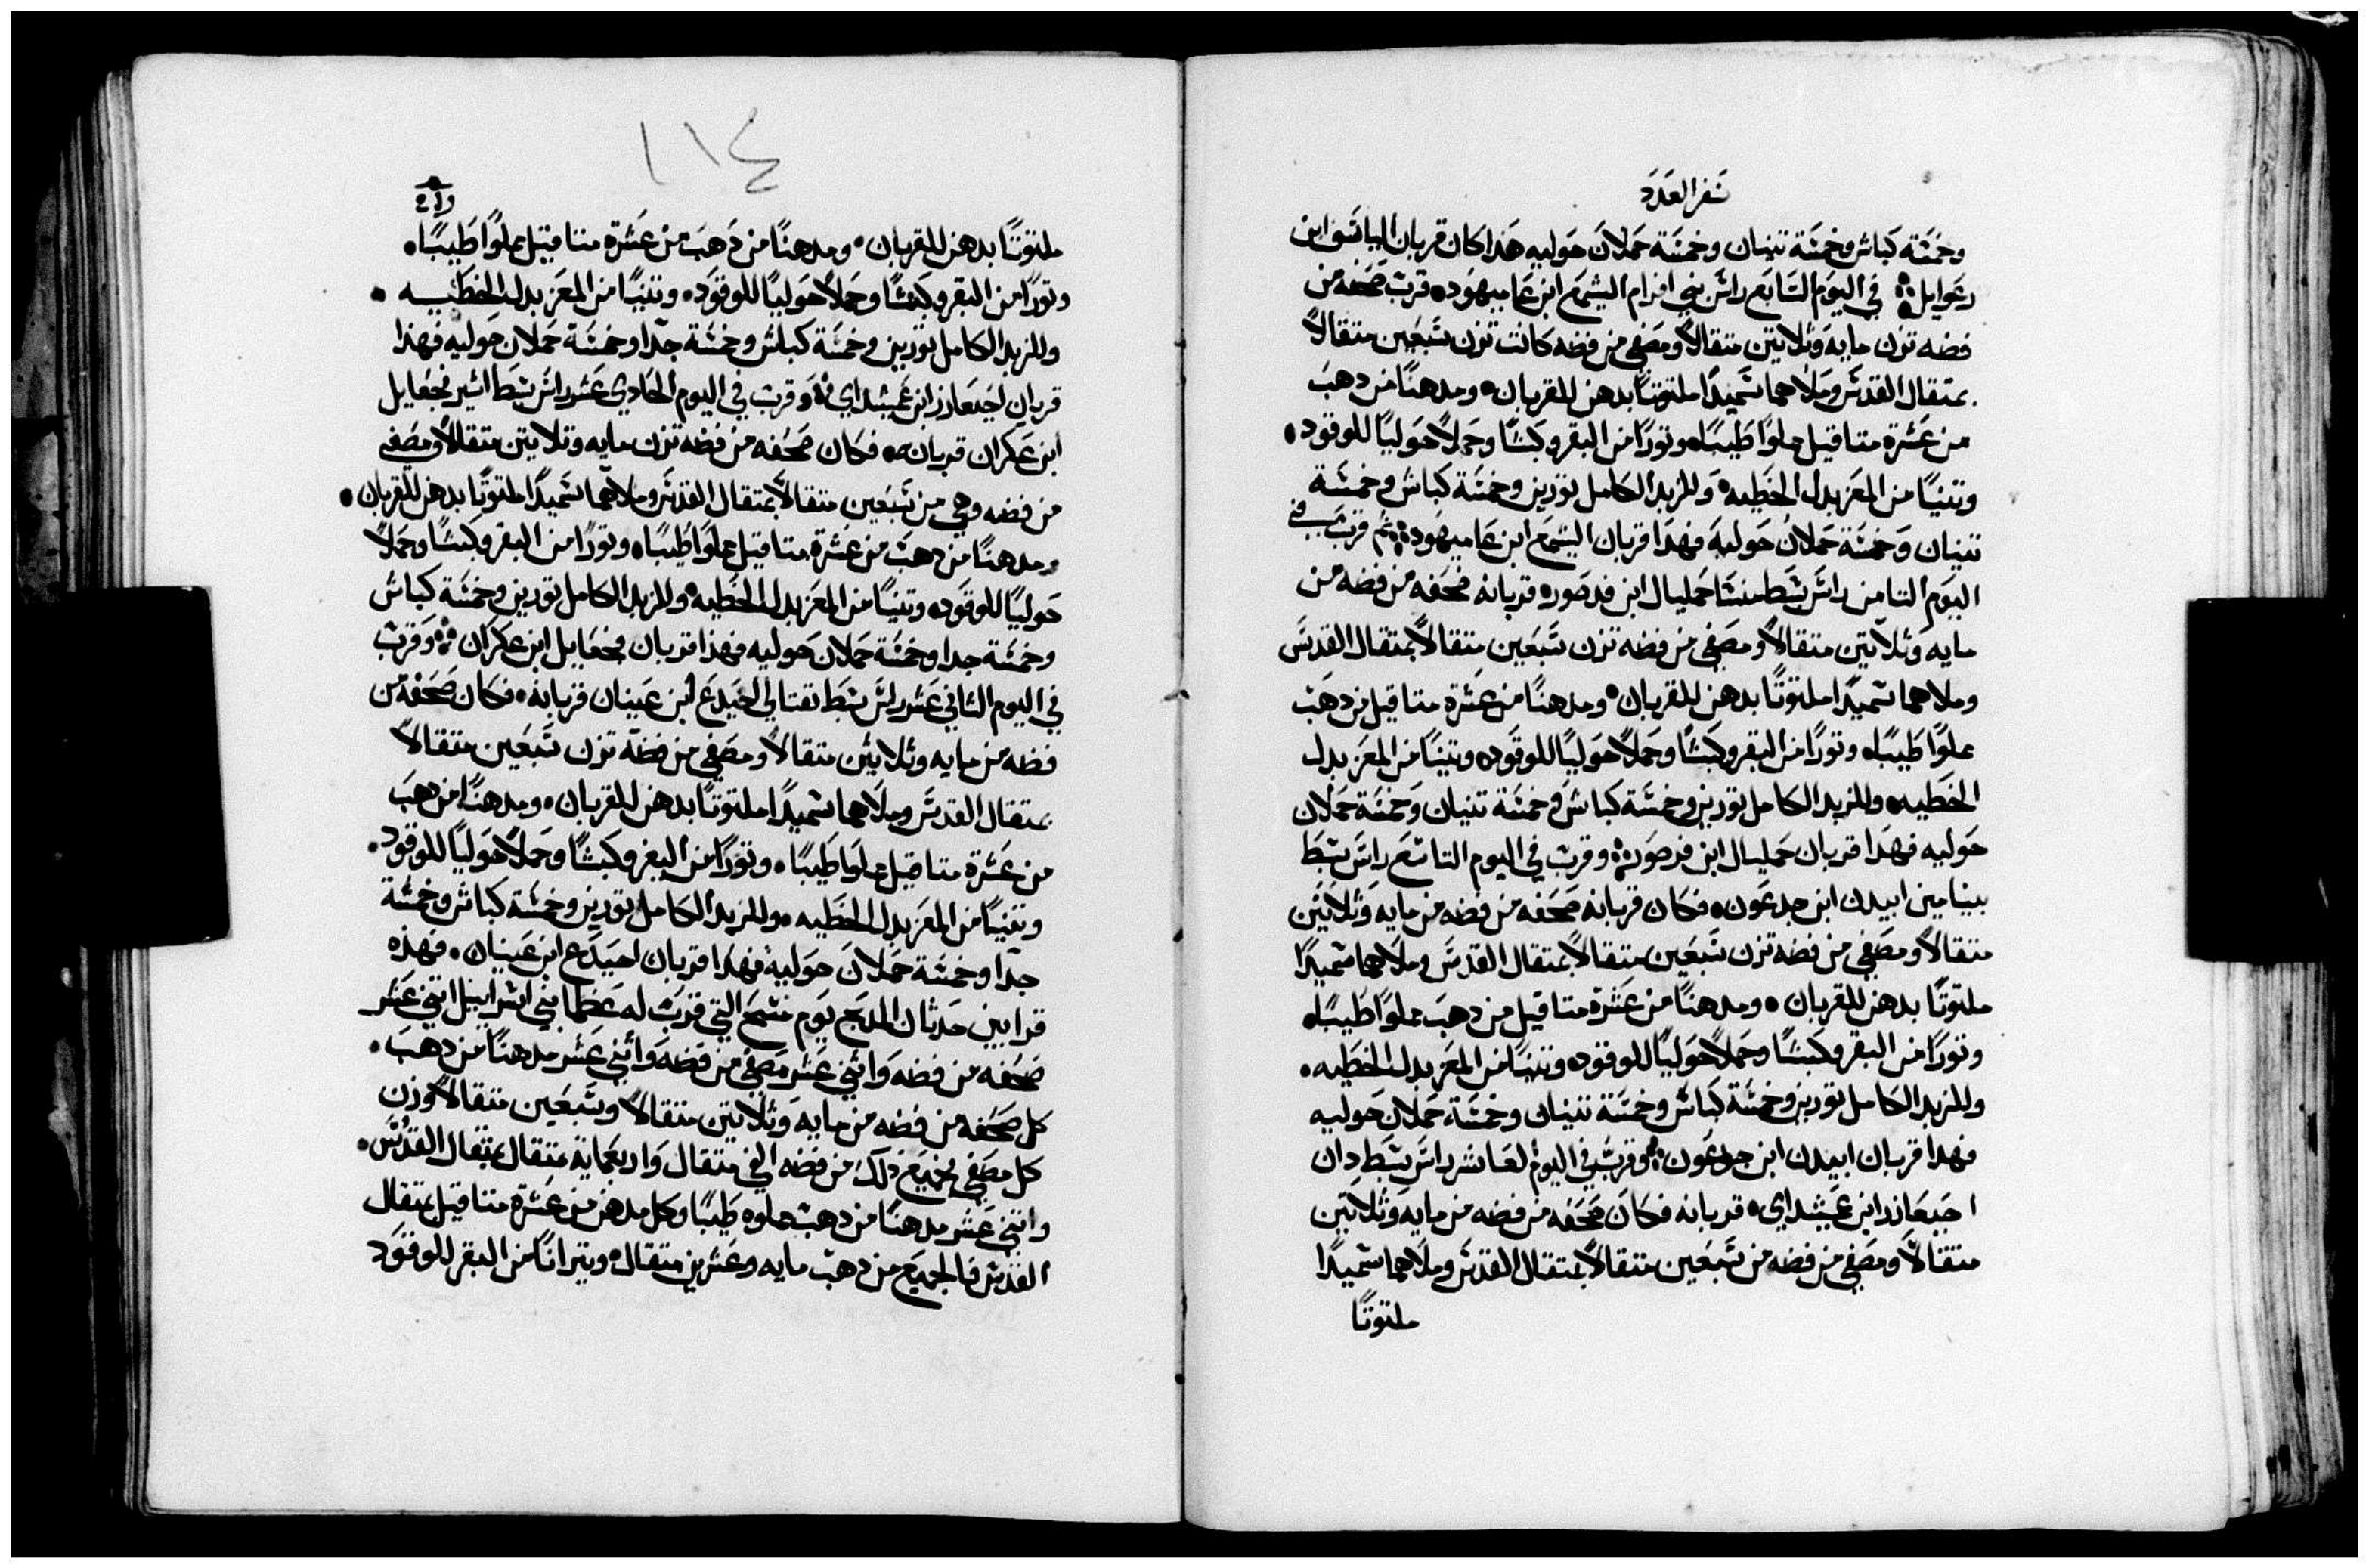 سفر العدد
وخمسة كباش وخمسة تنيان وخمسة حملان حوليه هذا كان قربان الياساف ابن
رعوايل في اليوم السابع راس بني افرام اليشمع ابن عاميهود قرب صحفه من
فضه تزن مايه وثلاثين متقالاً ومصفي من فضه كانت تزن سبعين متقالاً
بمتقال القدس وملاهما سميداً ملتوتاً بدهن للقربان ومدهناً من دهب
من عشرة متاقيل مملواً طيباً وتوراً من البقر وكبشاً وحملاً حولياً للوقود
وتنيًا من المعز بدل الخطيه وللزبد الكامل تورين وخمسة كباش وخمسة
تنيان وخمسة حملان حوليه فهدا قربان اليشمع ابن عاميهود ثم قرب في
اليوم التامن راس سبط منسا حمليال ابن فدصور قربانه صحفه من فضه من
مايه وثلاتين متقالاً ومصفي من فضه تزن سبعين متقالاً بمتقال القدس
وملاهما سميداً ملتوتًا بدهن للقربان ومدهنًا من عشرة متاقيل من دهب
مملوًا طيبًا وتورًا من البقر وكبشًا وحملاً حوليًا للوقود وتنيًا من المعز بدل
الخطيه وللزبد الكامل تورين وخمسة كباش وخمسة تنيان وخمسة حملان
حوليه فهدا قربان حمليال ابن فدصور وقرب في اليوم التاسع راس سبط
بينامين ابيدن ابن جدعون فكان قربانه صحفه من فضه من مايه وثلاتين
متقالاً ومصفي من فضه تزن سبعين متقالاً بمتقال القدس وملاهما سميدًا
ملتوتًا بدهن للقربان ومدهنًا من عشرة متاقيل من دهب مملوًا طيبًا
وتورًا من البقر وكبشًا وحملاً حوليًا للوقود وتنيًا من المعز بدل الخطيه
وللزبد الكامل تورين وخمسة كباش وخمسة تنيان وخمسة حملان حوليه
فهدا قربان ابيدن ابن جدعون وقرب في اليوم العاشر راس سبط دان
احيعازر ابن عميشداي قربانه فكان صحفه من فضه من مايه وثلاتين
متقالاً ومصفي من فضه من سبعين متقالاً بمتقال القدس وملاهما سميدًا
ملتوتًا
١١٤
ملتوتًا بدهن للقربان ومدهنًا من دهب من عشرة متاقيل مملوًا طيبًا
وتورًا من البقر وكبشًا وحملاً حوليًا للوقود وتنيًا من المعز بدل الخطيه
وللزبد الكامل تورين وخمسة كباش وخمسة جدا وخمسة حملان حوليه فهذا
قربان احيعازر ابن عميشداي وقرب في اليوم الحادي عشر راس سبط اشير فجعايل
ابن عكران قربانه فكان صحفه من فضه تزن مايه وثلاتين متقالاً ومصفي
من فضه وهي من سبعين متقالاً بمتقال القدس وملاهما سميدًا ملتوتًا بدهن للقربان
ومدهنًا من دهب من عشرة متاقيل مملوًا طيبًا وتورًا من البقر وكبشًا وحملاً
حوليًا للوقود وتنيًا من المعز بدل الخطيه وللزبد الكامل تورين وخمسة كباش
وخمسة جدا وخمسة حملان حوليه فهذا قربان فجعايل ابن عكران وقرب
في اليوم التاني عشر راس سبط نفتالي احيدع ابن عينان قربانه فكان صحفه من
فضه من مايه وثلاتين متقالاً ومصفي من فضة تزن سبعين متقالاً
بمتقال القدس وملاهما سميدًا ملتوتًا بدهن للقربان ومدهنًا من دهب
من عشرة متاقيل مملوا طيبًا وتورًا من البقر وكبشًا وحملاً حوليًا للوقود
وتنيًا من المعز بدل الخطيه وللزبد الكامل تورين وخمسة كباش وخمسة
جدا وخمسة حملان حوليه فهذا قربان احيدع ابن عينان فهذه
قرابين حدثان المدبح يوم مسح التي قربت له عظما بني اسراييل اتني عشر
صحفه من فضه واتني عشر مصفي من فضه واتني عشر مدهنًا من دهب
كل صحفه من فضه من مايه وثلاتين متقالاً وسبعين متقالاً وزن
كل مصفي فجميع ذلك من فضه الفي متقال واربعماية متقال بمتقال القدس
واتني عشر مدهنًا من دهب مملوه طيبًا وكل مدهن من عشرة متاقيل بمتقال
القدس فالجميع من دهب مايه وعشرين متقال وتيرانًا من البقر للوقود